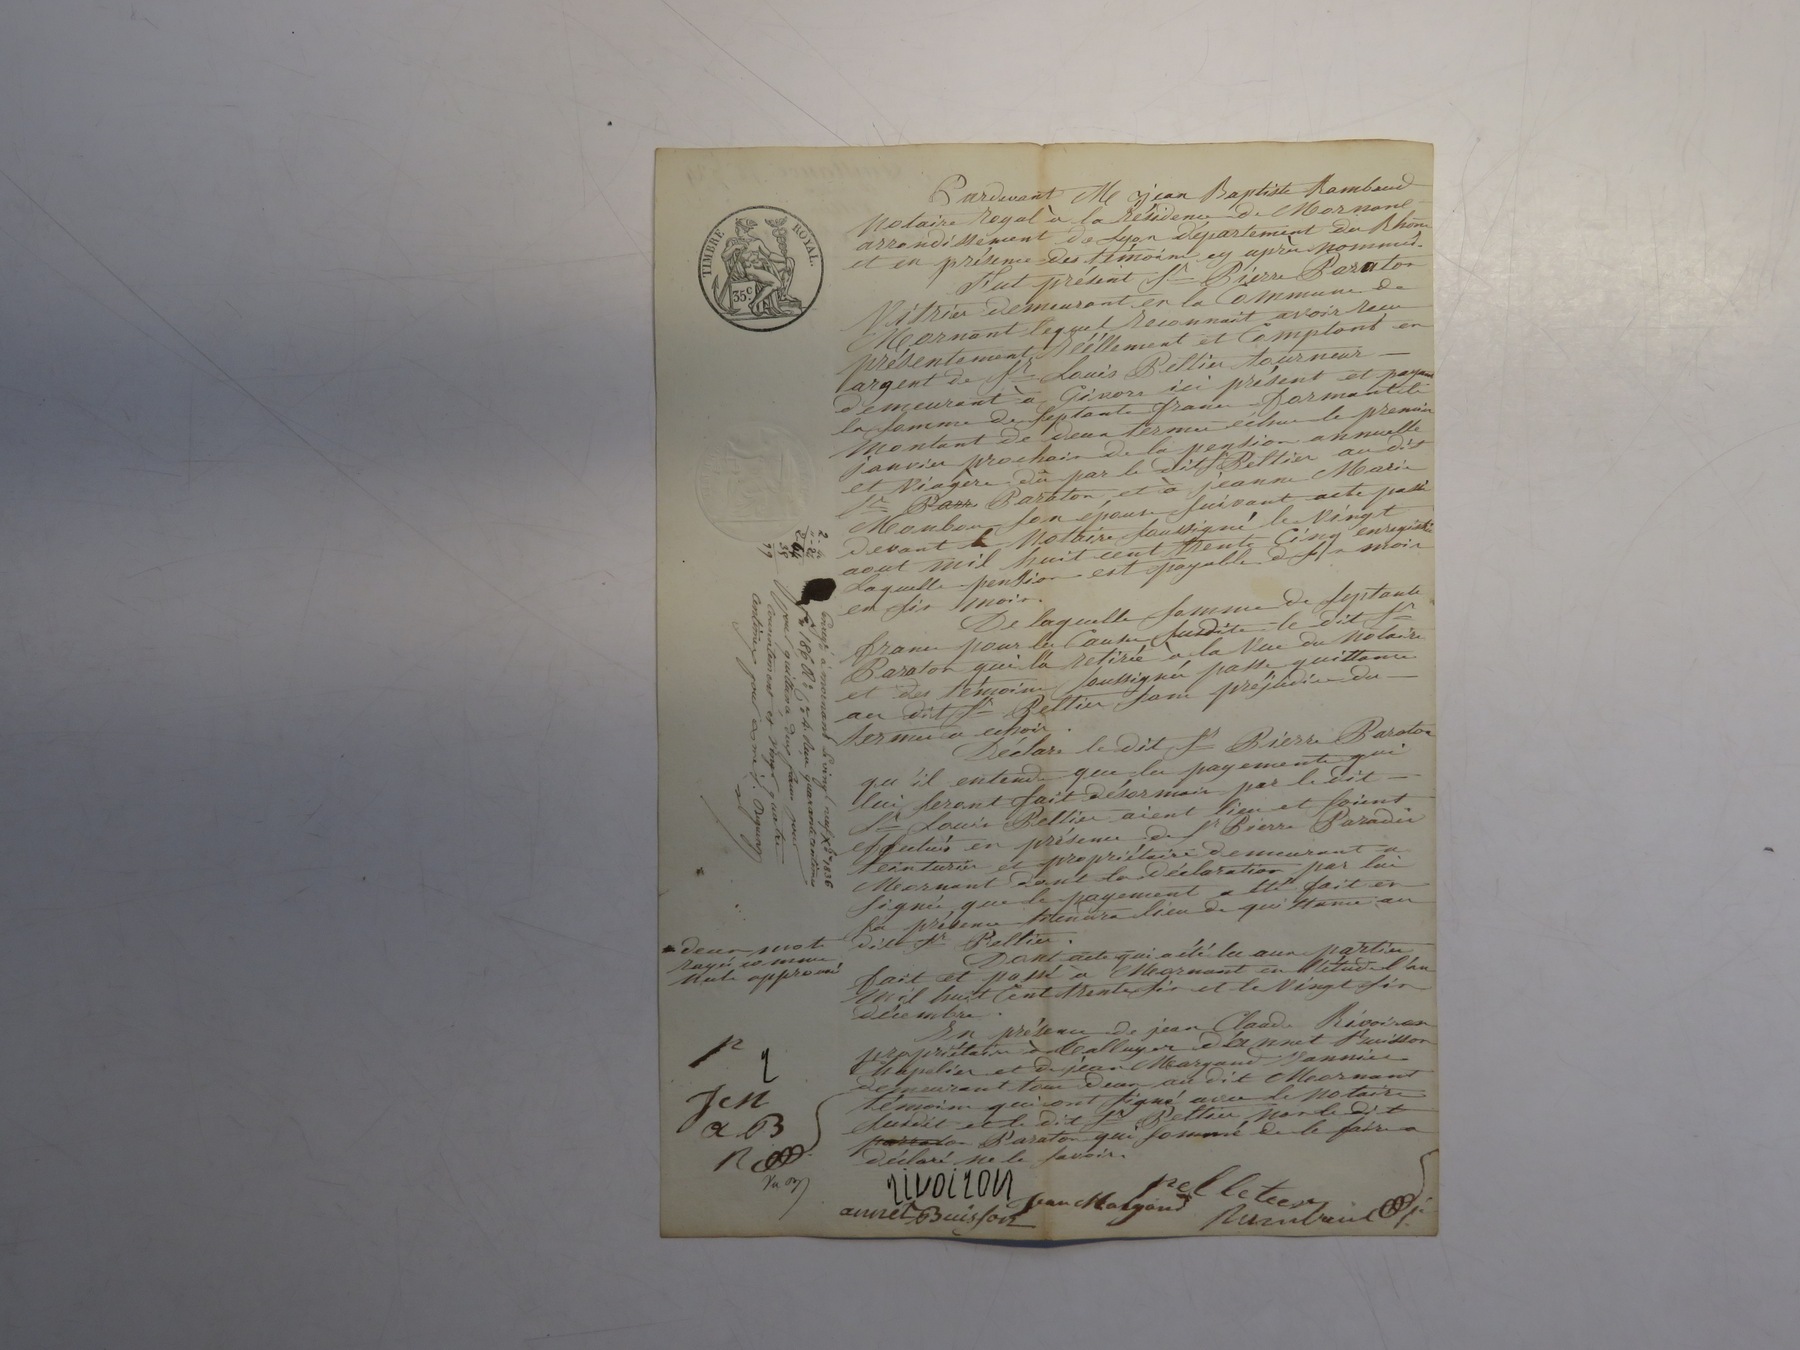 TIMBRE ROYAL.
35c
Pardevant Me jean Baptiste Rambaud
Notaire royal à la résidence de Mornant
arrondissement de Lyon département du Rhône
et en présence des témoins cy après nommés.
Fut présent Sr Pierre Paraton
Vitrier demeurant en la Commune de
Mornant lequel reconnait avoir reçu
présentement réellement et Comptant en
argent de Sr Louis Peltier tourneur —
demeurant à Givors ici présent et payant
la somme de septante francs formant le
montant de deux termes échus le premier
janvier prochain de la pension annuelle
et viagère dû par le dit Sr Peltier au dit
Sr Parr Paraton et à jeanne Marie
son épouse suivant acte passé
devant le Notaire soussigné le vingt
aout mil huit cent trente Cinq enregistré
Laquelle pension est payable de six mois
en six mois.
De laquelle somme de septante
francs pour les Causes susdite le dit Sr
Paraton qui l'à retirée à la Vue du notaire
et des témoins soussignés passe quittance
au dit Sr Peltier sans préjudice du —
termes a échoir.
Déclare le dit Sr Pierre Paraton
qu'il entend que les payements qui
lui seront fait désormais par le dit —
Sr Louis Peltier aient lieu et soient
éfectués en présence de Sr Pierre Paradis
teinturier et propriétaire demeurant a
Mornant dont la déclaration par lui
signée que le payement a été fait en
sa présence tiendra lieu de quittance au
dit Sr Peltier.
Dont acte qui a été lu aux parties
fait et passé à Mornant en l'étude l'an
mil huit Cent trente six et le vingt six
décembre.
En présence de jean Claude Rivoiron
propriétaire à Talluyer d'énnet Buisson
Chapelier et de jean Margand
demeurant tous deux au dit Mornant
témoins qui ont signé avec le notaire
susdit et le dit Sr Peltier non le dit
Paraton qui sommé de le faire a
déclaré ne le savoir.
rivoiron
pelletier
annet Buisson
jean Margand
Rambaud
deux mots
rayés comme
Nuls approuvé
P
JCM
a B
R
Enregé à mornant le vingt neuf Xbre 1836
fo 186 Ro Cse 4. reçu quarante centimes
pour quittance deux francs pour
et vingt quatre
centimes pour